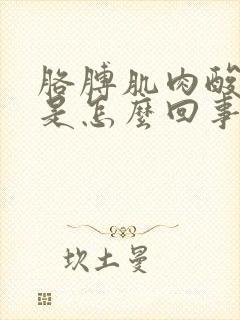 胳膊肌肉酸
是怎麼回事
坎土曼